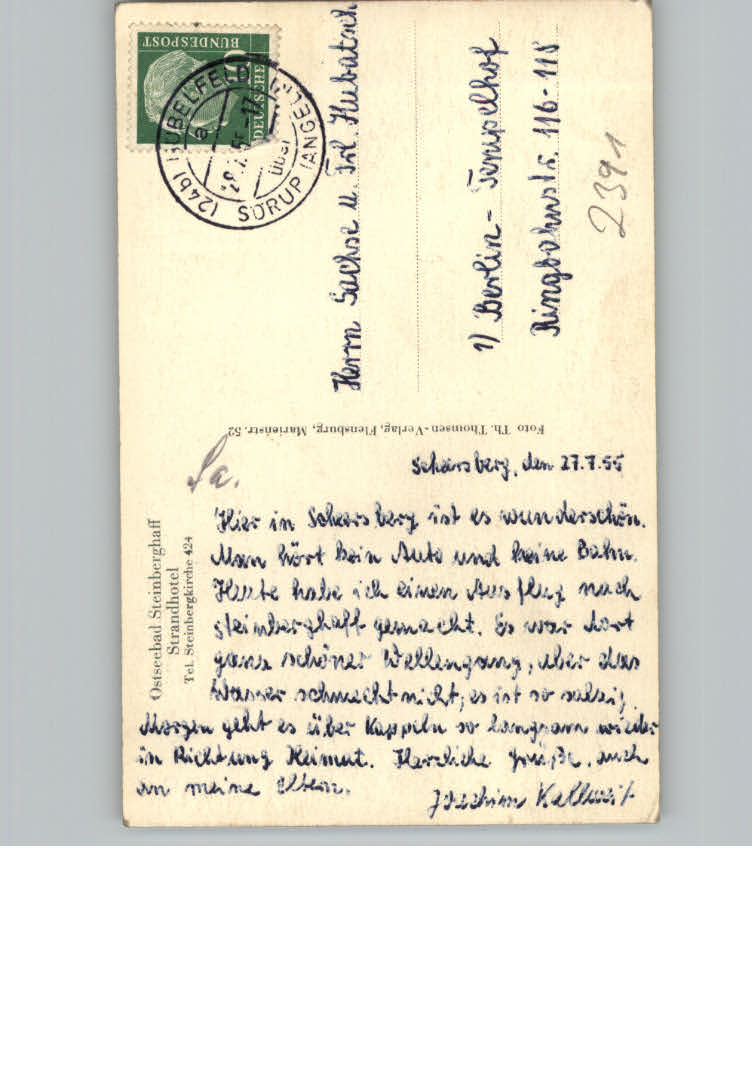 DEUTSCHE
BUNDESPOST
(24b) HÜBELFELD
über
SÖRUP (ANGELN)
a
Herrn Sachse u. Frl. Kubatsch
1) Berlin - Tempelhof
Ringbahnstr. 116-118
2391
Foto Th. Thomsen-Verlag, Flensburg, Marienstr. 52
Sa.
Ostseebad Steinberghaff
Strandhotel
Tel. Steinbergkirche 424
Schersberg, den 27.7.55
Hier in Schersberg ist es wunderschön.
Man hört kein Auto und keine Bahn.
Heute habe ich einen Ausflug nach
Steinberghaff gemacht. Es war dort
ganz schöner Wellengang, aber das
Wasser schmeckt nicht, es ist so salzig.
Morgen geht es über Kappeln so langsam wieder
in Richtung Heimat. Herzliche Grüße, auch
an meine Eltern.
Joachim Kallweit